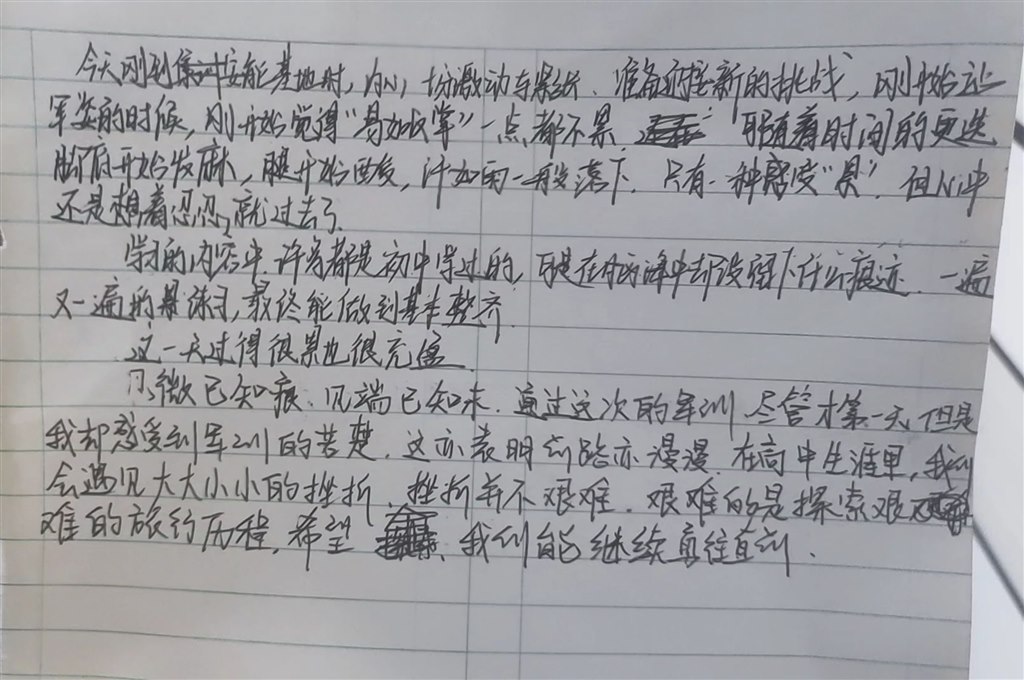 今天刚到安能基地时，内心十分激动与紧张、准备迎接新的挑战，刚开始站
军姿的时候，刚开始觉得“易如反掌”一点都不累，可随着时间的更迭
脚底开始发麻，腿开始酸，汗如雨一般落下，只有一种感受“累”，但心中
还是想着忍忍，就过去了。
学习的内容中，许多都是初中学过的，可是在脑海中却没留下什么痕迹，一遍
又一遍的练习，最终能做到基本整齐.
这一天过得很累也很充实
见微已知痕、见端已知末，通过这次的军训尽管才第一天，但是
我却感受到军训的苦楚，这亦表明前路亦漫漫，在高中生涯里，我们
会遇见大大小小的挫折，挫折并不艰难，艰难的是探索艰
难的旅行历程，希望我们能继续勇往直前.